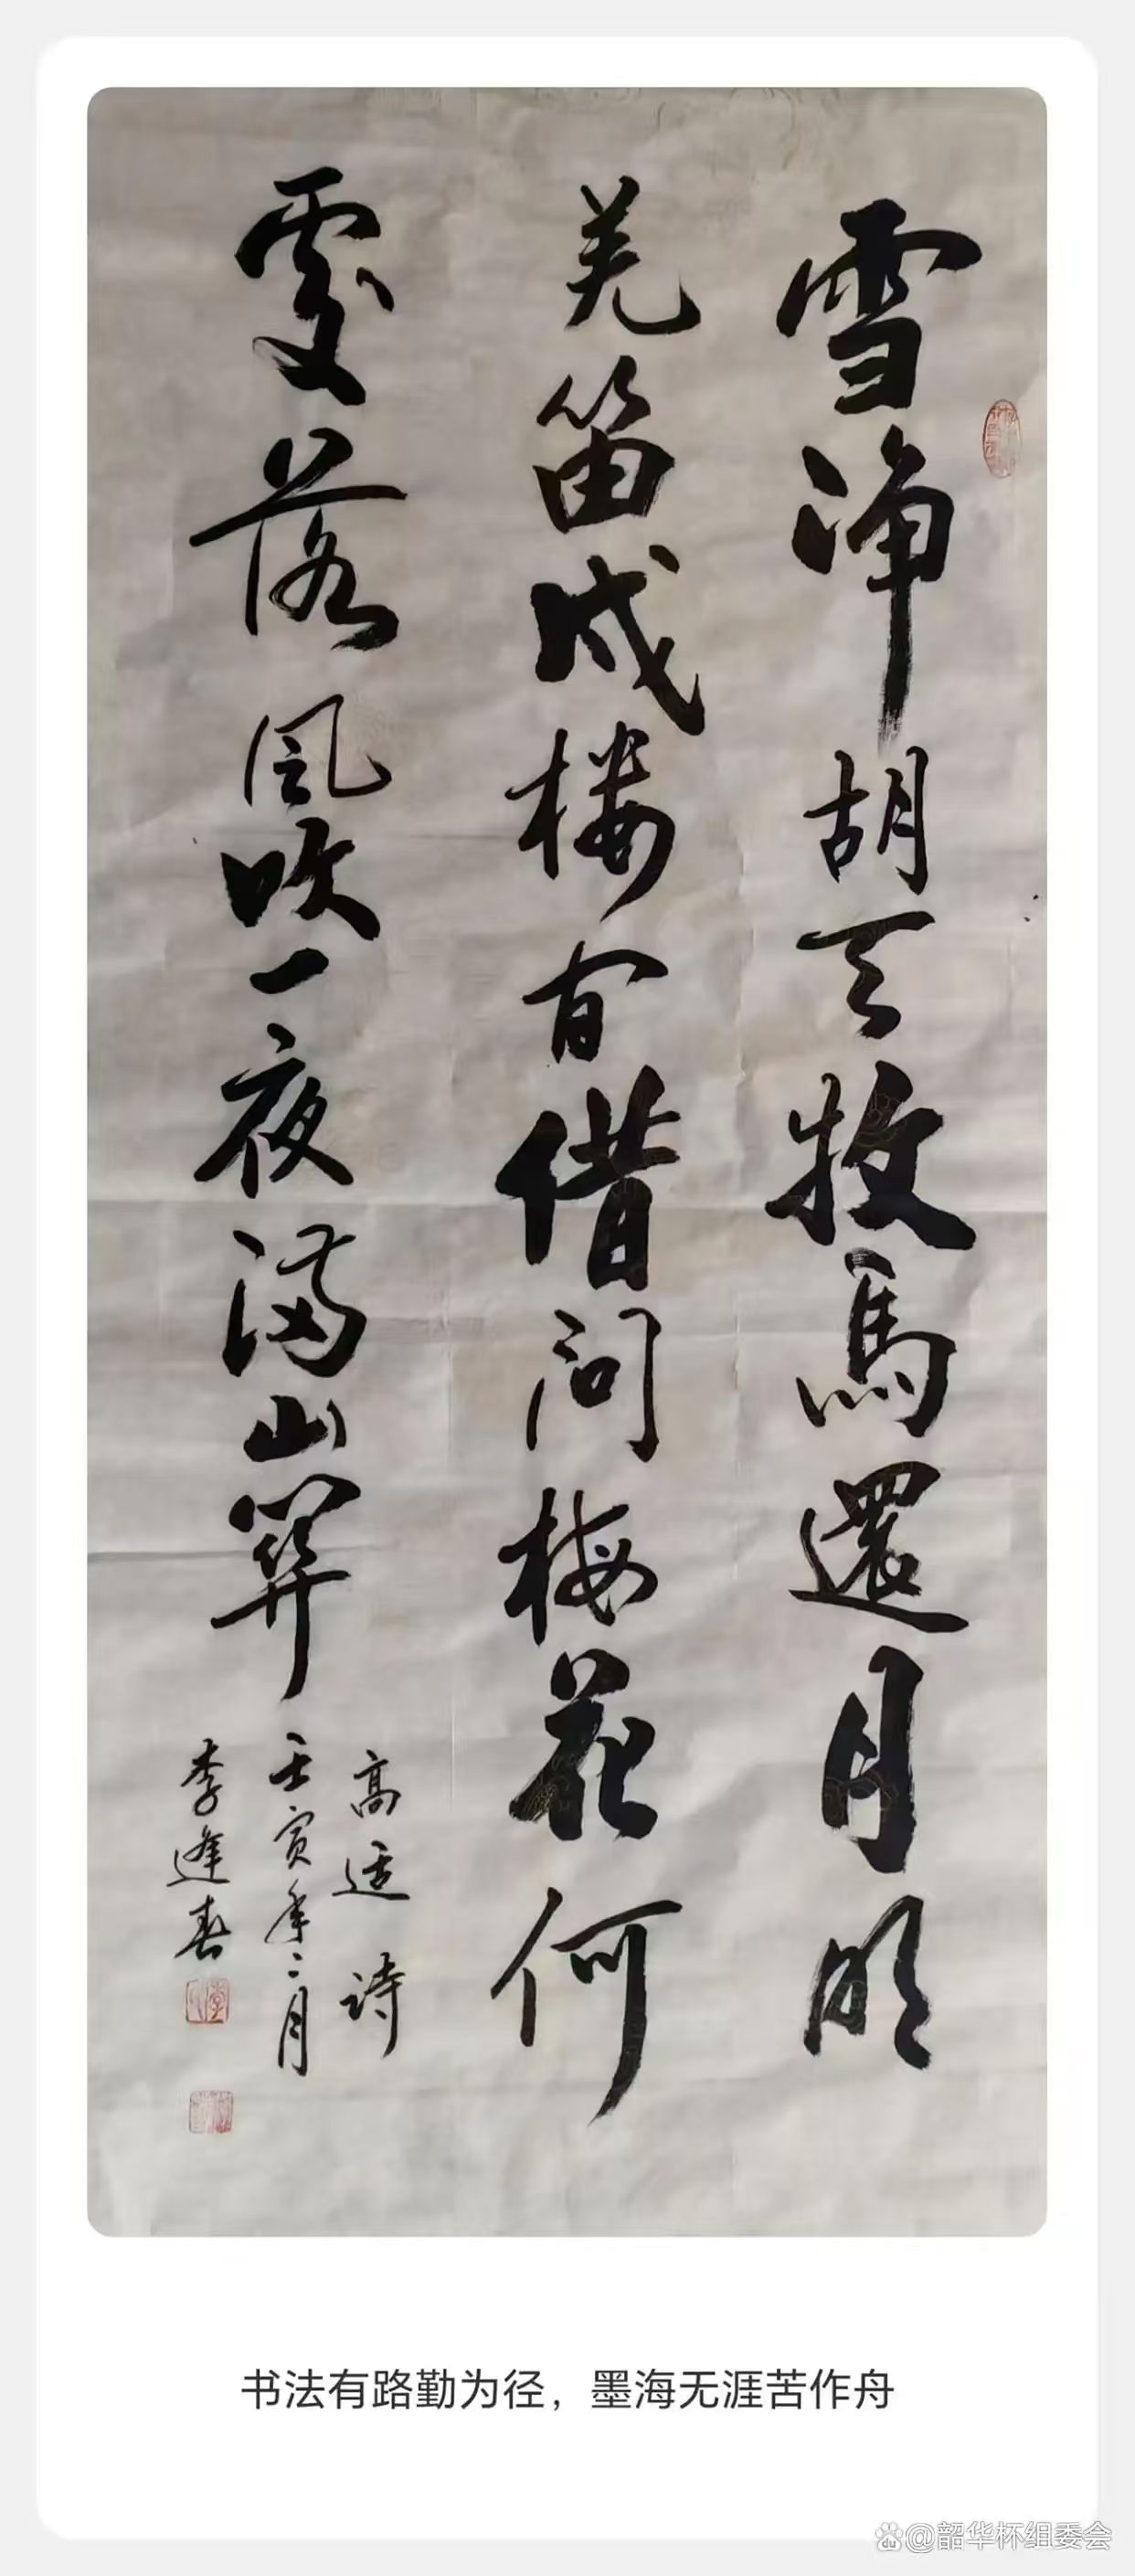 雪净胡天牧馬還月明
羌笛戍楼间借问梅花何
處落风吹一夜满山
高适詩
壬寅年二月
李逢春
书法有路勤为径，墨海无涯苦作舟
du @韶华杯组委会